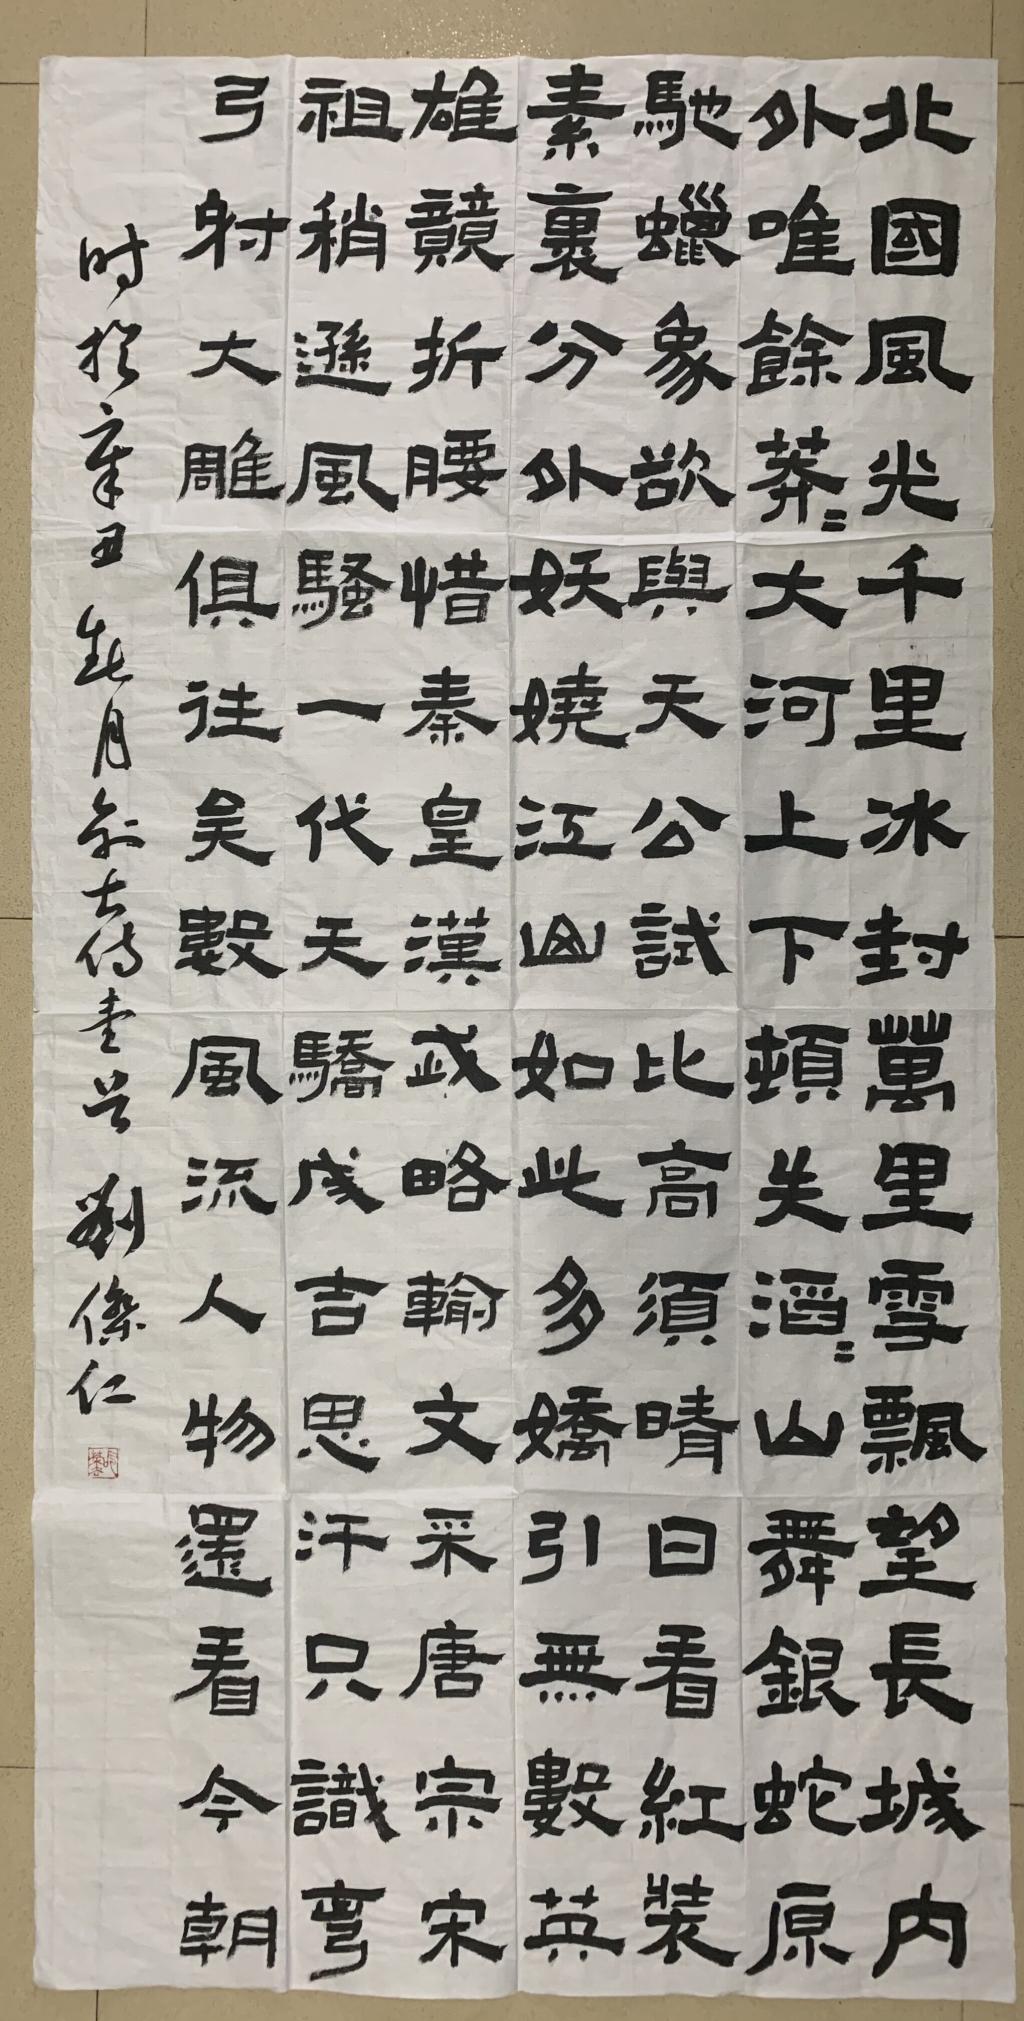 北國風光千里冰封萬里雪飄望長城内
外唯餘莽〻大河上下頓失滔〻山舞銀蛇原
馳蠟象欲與天公試比高須晴日看紅裝
素裹分外妖嬈江山如此多嬌引無數英
雄競折腰惜秦皇漢武略輸文采唐宗宋
祖稍遜風騷一代天驕成吉思汗只識彎
弓射大雕俱往矣數風流人物還看今朝
时於辛丑 月 劉傑仁